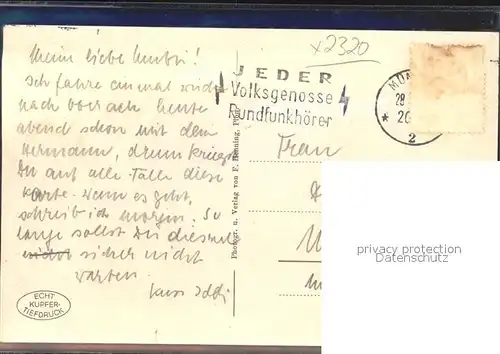 x2320
Mein liebe Mutti!
Ich fahre einmal wieder
nach heute
abend schon mit dem
Hermann, drum kriegst
Du auf alle Fälle diese
Karte. Wenn es geht,
schreib ich morgen. So
lange sollst Du diesmal
sicher nicht
warten.
Kuss
ECHT
KUPFER-
TIEFDRUCK
Photogr. u. Verlag von E. Henning,
JEDER
Volksgenosse
Rundfunkhörer
2
Frau
privacy protection
Datenschutz